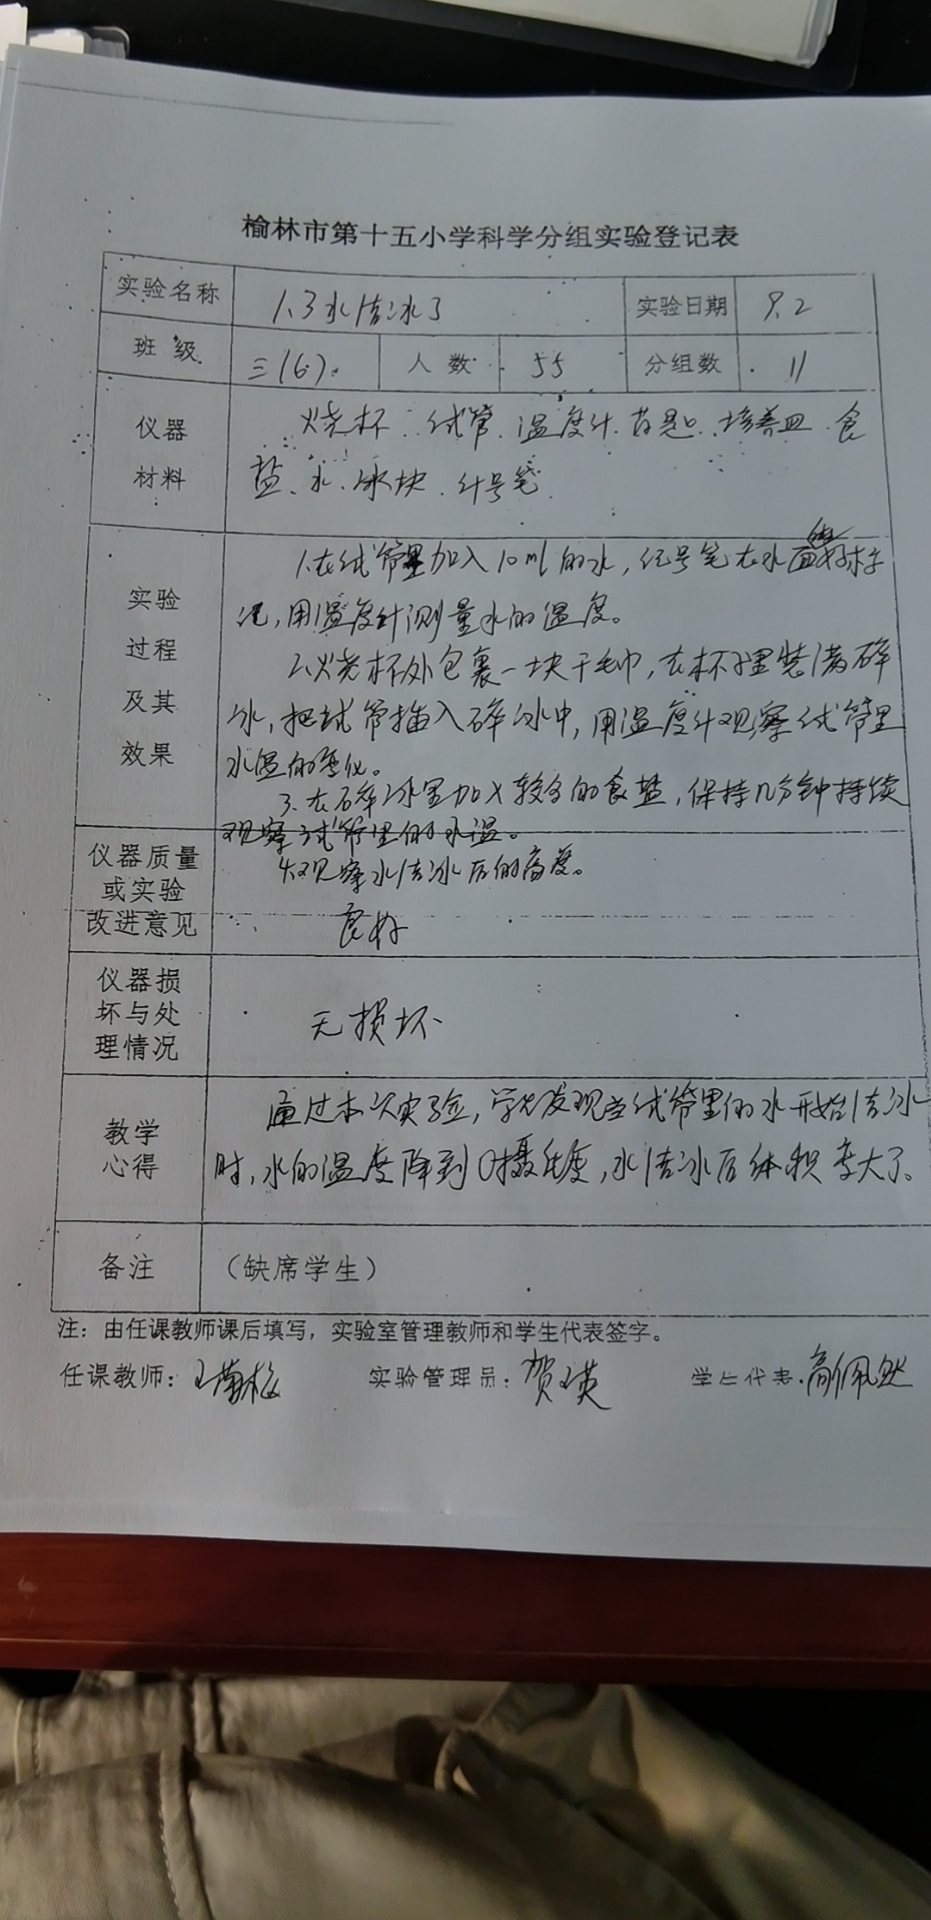 榆林市第十五小学科学分组实验登记表
实验名称 1.3水结冰了 实验日期 9.2
班级 三(6). 人数 55 分组数 11
仪器 烧杯. 试管. 温度计. 药匙. 培养皿. 食
材料 盐、水、冰块. 记号笔.
1.在试管里加入10ml的水,记号笔在水面
实验 记,用温度计测量水的温度。
过程 2.烧杯外包裹一块干毛巾,在杯子里装满碎
及其 冰,把试管插入碎冰中,用温度计观察试管里
效果 水温的变化。
3.在碎冰里加入较多的食盐,保持几分钟持续
观察试管里的水温。
仪器质量 4.观察水结冰后的高度。
或实验
改进意见 良好
仪器损
坏与处 无损坏
理情况
通过本次实验,学生发现当试管里的水开始结冰
教学
心得 时,水的温度降到0摄氏度,水结冰后体积变大了。
备注 (缺席学生)
注: 由任课教师课后填写, 实验室管理教师和学生代表签字。
任课教师: 实验管理员: 贺瑛 学生代表. 高佩然